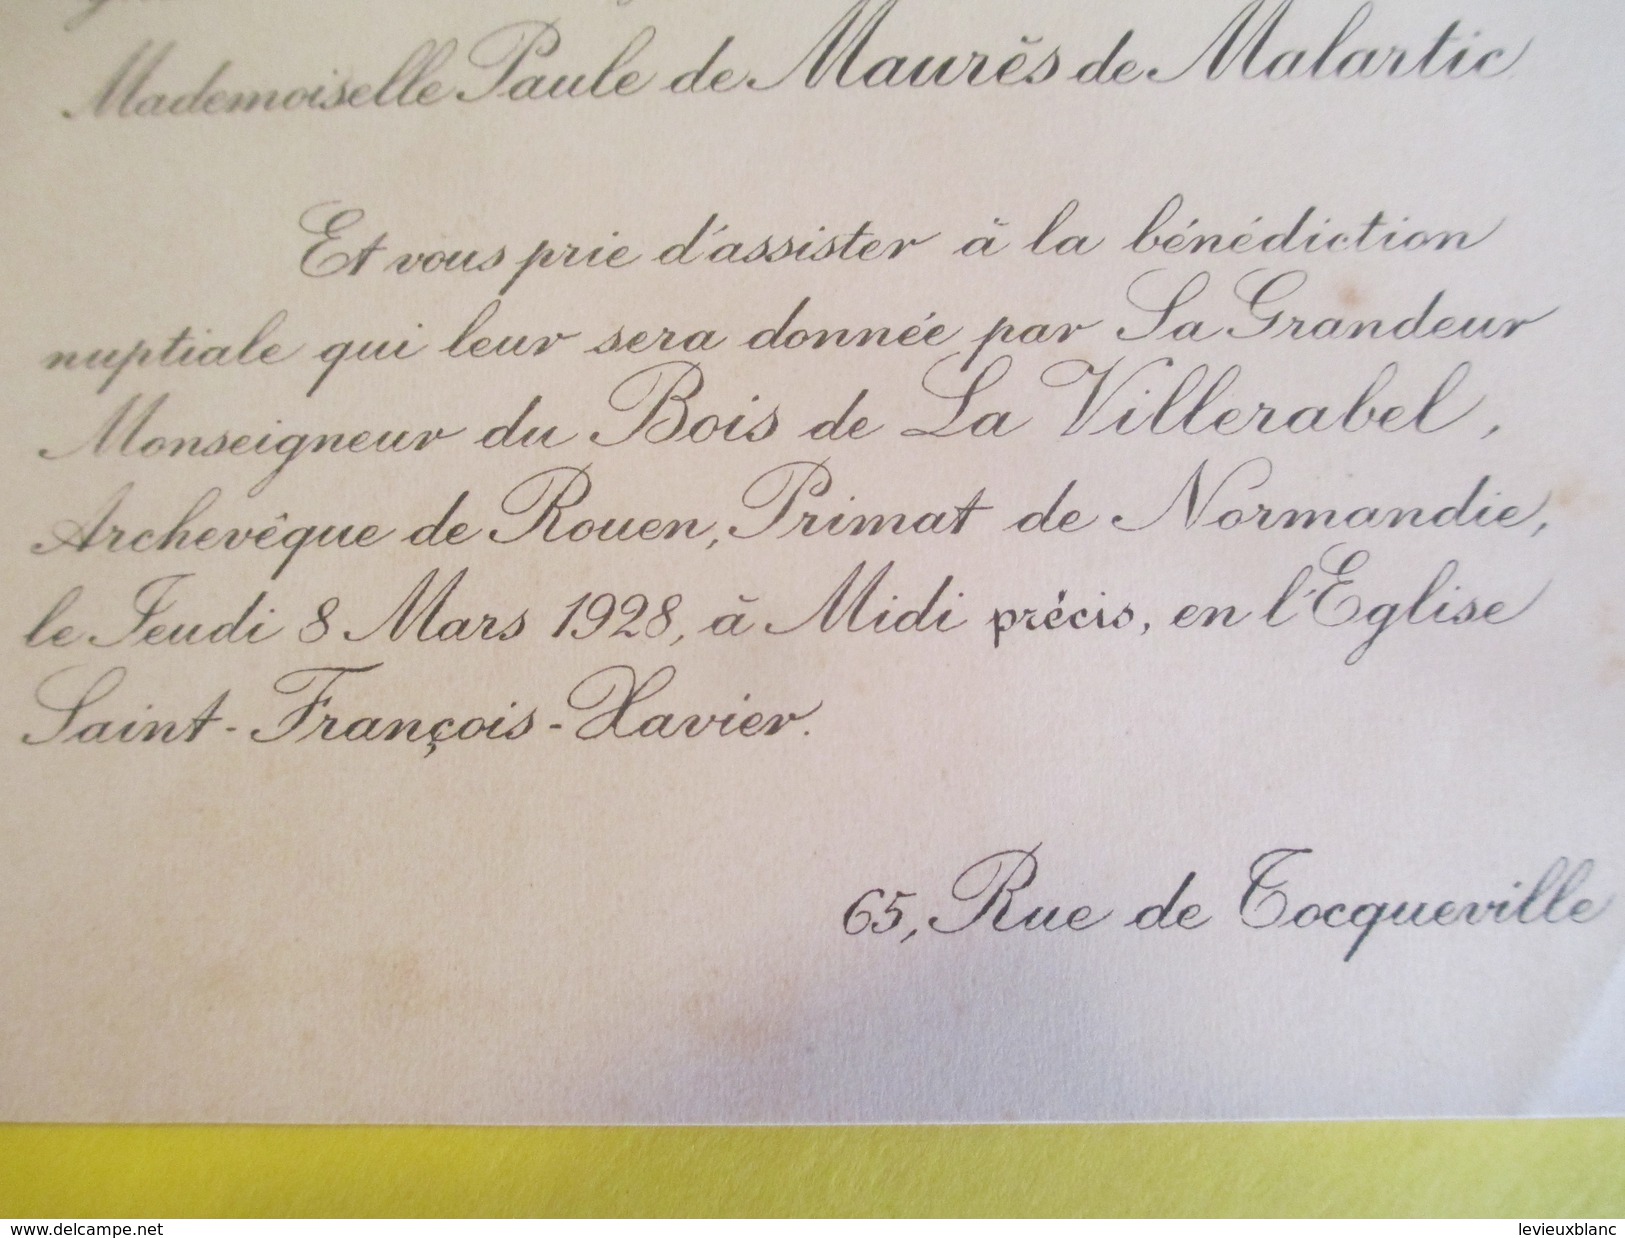 Mademoiselle Paule de Maurès de Malartic
Et vous prie d'assister à la bénédiction
nuptiale qui leur sera donnée par Sa Grandeur
Monseigneur du Bois de La Villerabel,
Archevêque de Rouen, Primat de Normandie,
le Jeudi 8 Mars 1928, à Midi précis, en l'Eglise
Saint-François-Xavier.
65, Rue de Tocqueville
www.delcampe.net
levieuxblanc